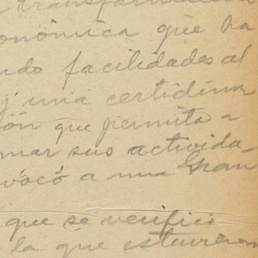 transforma
onómica que ha
ndo facilidades al
y una certidum
ón que permita a
mar sus activida
vocó a una Gran
que se verificó
la que estuvieron